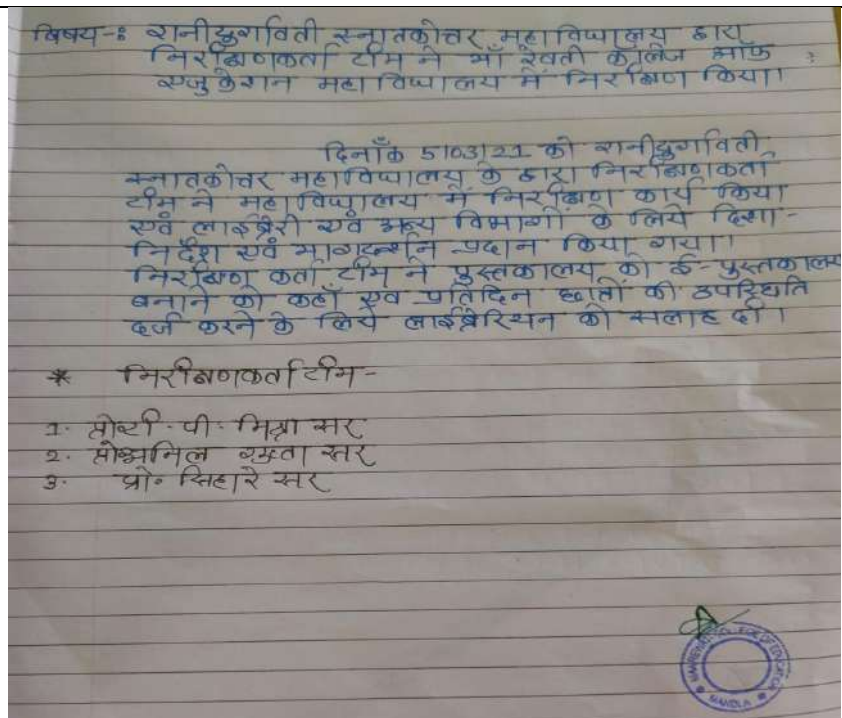 विषय-: रानीदुर्गावती स्नातकोत्तर महाविद्यालय द्वारा
निरीक्षणकर्ता टीम ने माँ रेवती कॉलेज ऑफ
एजुकेशन महाविद्यालय में निरीक्षण किया।
दिनाँक 5/03/21 को रानीदुर्गावती
स्नातकोत्तर महाविद्यालय के द्वारा निरीक्षणकर्ता
टीम ने महाविद्यालय में निरीक्षण कार्य किया
एवं लाईब्रेरी एवं अन्य विभागों के लिये दिशा-
निर्देश एवं मार्गदर्शन प्रदान किया गया।
निरीक्षण कर्ता टीम ने पुस्तकालय को ई-पुस्तकालय
बनाने को कहाँ एव प्रतिदिन छात्रों की उपस्थिति
दर्ज करने के लिये लाईब्रेरियन को सलाह दी।
* निरीक्षणकर्ता टीम-
1. पी. मिश्रा सर
2. अनिल सर
3. प्रो. सिहारे सर
MANDLA